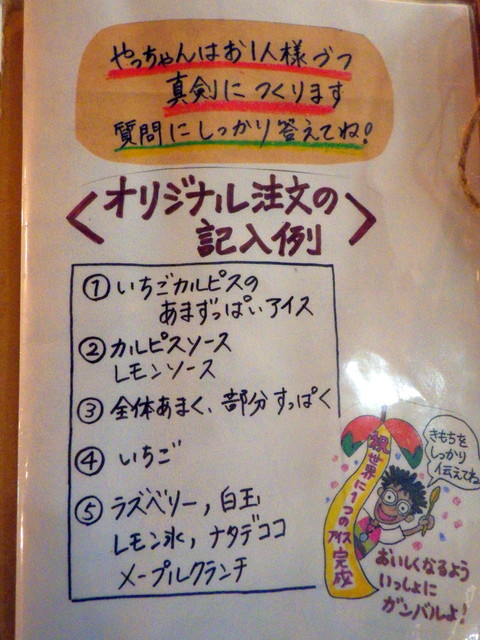 やっちゃんはお1人様づつ
真剣につくります
質問にしっかり答えてね!
<オリジナル注文の
記入例>
① いちごカルピスの
あまずっぱいアイス
② カルピスソース
レモンソース
③ 全体あまく、部分すっぱく
④ いちご
⑤ ラズベリー, 白玉
レモン氷, ナタデココ
メープルクランチ
祝世界に1つのアイス完成
きもちを
しっかり
伝えてね
おいしくなるよう
いっしょに
ガンバルよ!